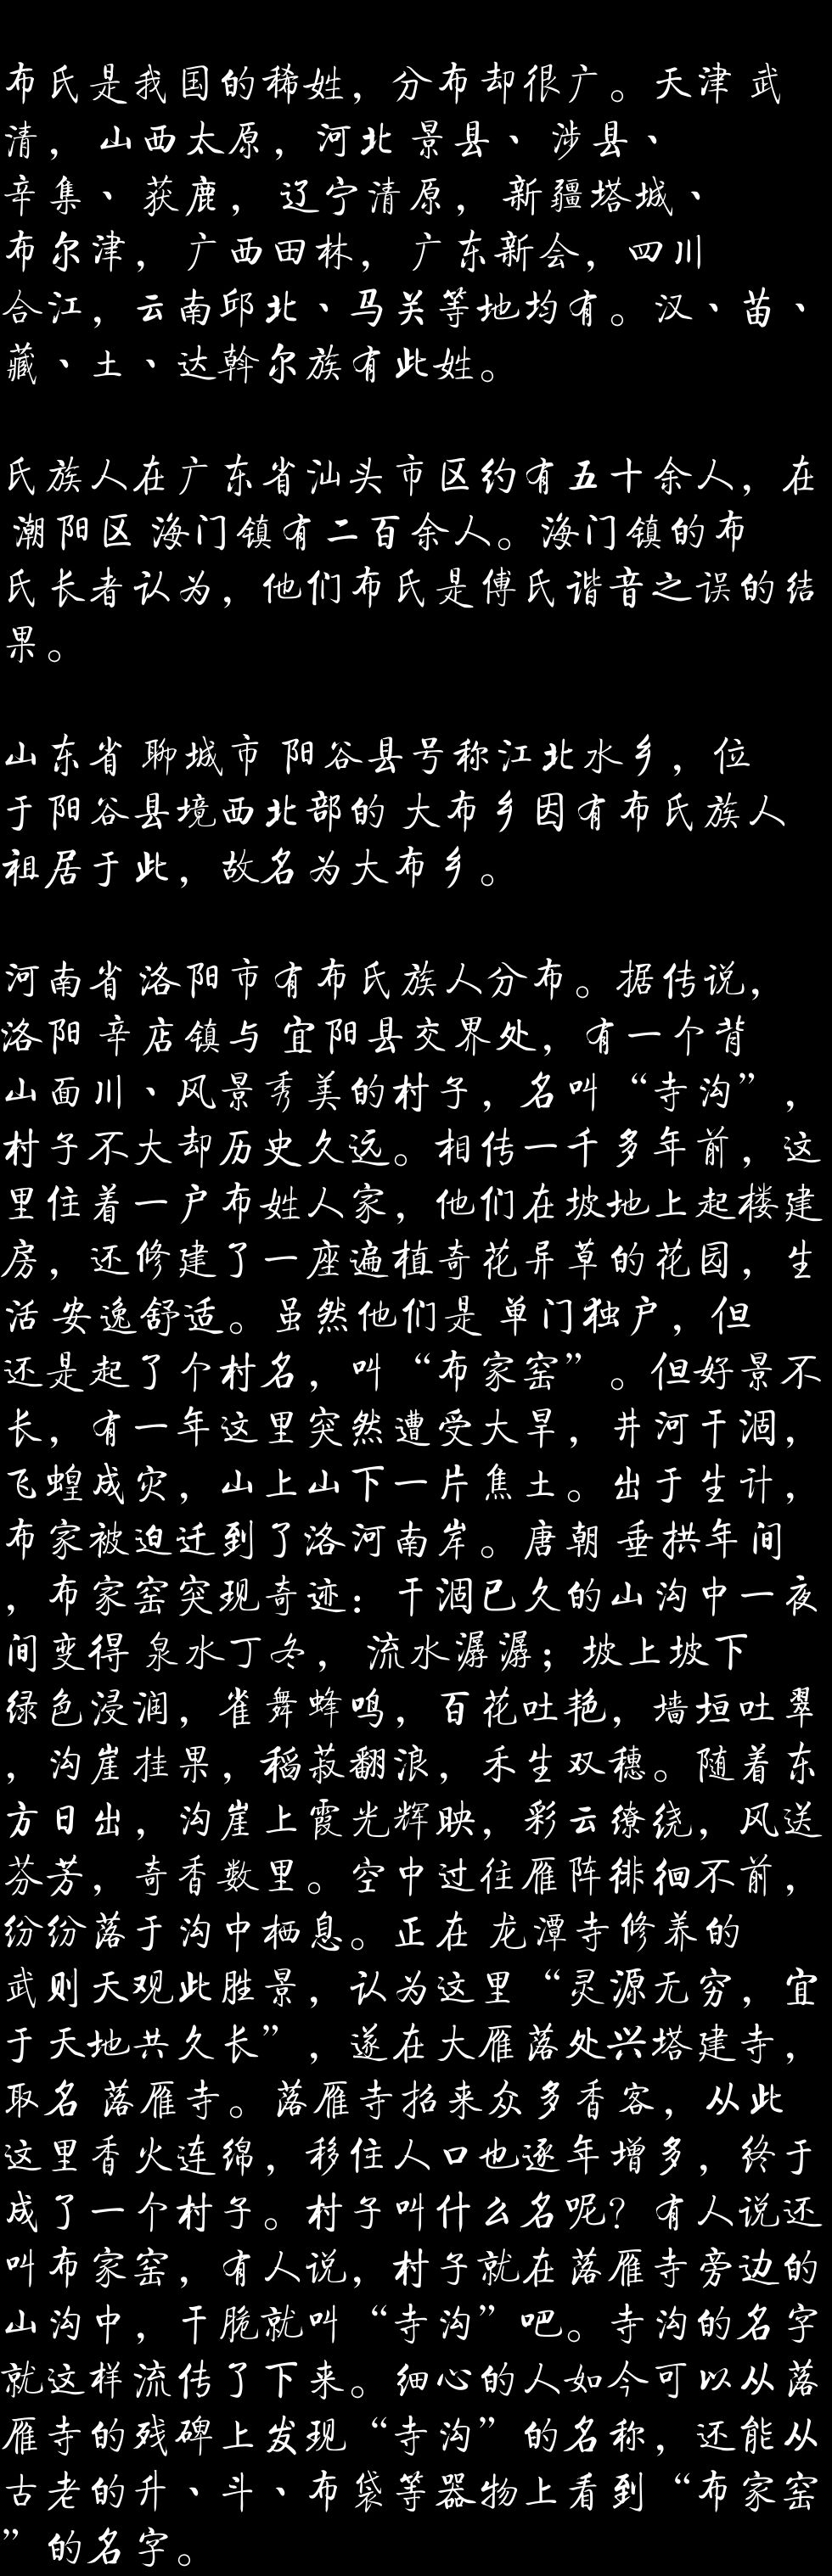 布氏是我国的稀姓，分布却很广。天津 武
清， 山西太原，河北 景县、 涉县、
辛集、 获鹿， 辽宁清原， 新疆塔城、
布尔津， 广西田林， 广东新会，四川
合江，云南邱北、马关等地均有。汉、苗、
藏、土、达斡尔族有此姓。
氏族人在广东省汕头市区约有五十余人，在
潮阳区 海门镇有二百余人。海门镇的布
氏长者认为，他们布氏是傅氏谐音之误的结
果。
山东省 聊城市 阳谷县号称江北水乡，位
于阳谷县境西北部的 大布乡因有布氏族人
祖居于此，故名为大布乡。
河南省 洛阳市有布氏族人分布。据传说，
洛阳 辛店镇与 宜阳县交界处，有一个背
山面川、风景秀美的村子，名叫“寺沟”，
村子不大却历史久远。相传一千多年前，这
里住着一户布姓人家，他们在坡地上起楼建
房，还修建了一座遍植奇花异草的花园，生
活 安逸舒适。虽然他们是 单门独户，但
还是起了个村名，叫“布家窑”。但好景不
长，有一年这里突然遭受大旱，井河干涸，
飞蝗成灾，山上山下一片焦土。出于生计，
布家被迫迁到了洛河南岸。唐朝 垂拱年间
，布家窑突现奇迹：干涸已久的山沟中一夜
间变得 泉水丁冬， 流水潺潺；坡上坡下
绿色浸润，雀舞蜂鸣，百花吐艳，墙垣吐翠
，沟崖挂果，稻菽翻浪，禾生双穗。随着东
方日出，沟崖上霞光辉映，彩云缭绕，风送
芬芳，奇香数里。空中过往雁阵徘徊不前，
纷纷落于沟中栖息。正在 龙潭寺修养的
武则天观此胜景，认为这里“灵源无穷，宜
于天地共久长”，遂在大雁落处兴塔建寺，
取名 落雁寺。落雁寺招来众多香客，从此
这里香火连绵，移住人口也逐年增多，终于
成了一个村子。村子叫什么名呢？有人说还
叫布家窑，有人说，村子就在落雁寺旁边的
山沟中，干脆就叫“寺沟”吧。寺沟的名字
就这样流传了下来。细心的人如今可以从落
雁寺的残碑上发现“寺沟”的名称，还能从
古老的升、斗、布袋等器物上看到“布家窑
”的名字。